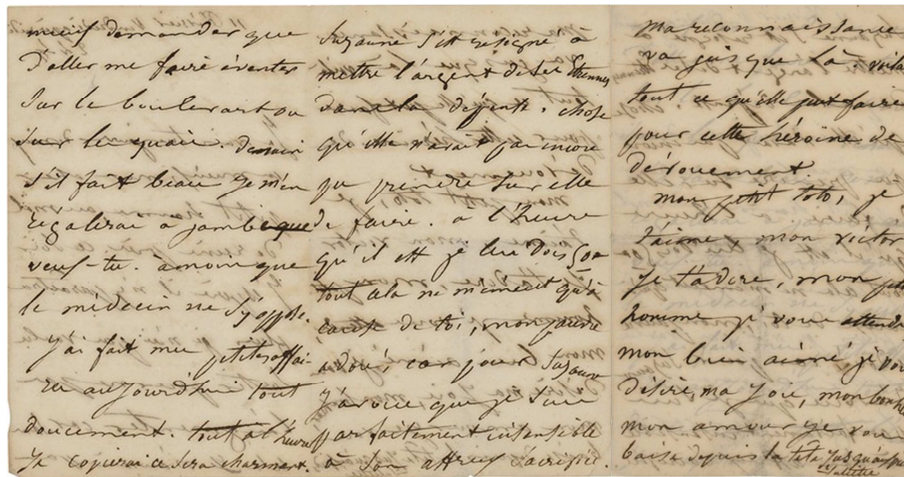 mieux demander que
d'aller me faire éventer
sur le boulevart ou
sur les quais. demain
s'il fait beau je m'en
régalerai à jambe que
veux-tu. à moins que
le médecin ne s'y oppose.
j'ai fait mes petites affai
res aujourd'hui tout
doucement. tout à l'heure
je copierai ce sera charmant.
Suzanne s'est résigné à
mettre l'argent de ses étrennes
dans la dépense. chose
qu'elle n'avait pas encore
pu prendre sur elle
de faire. à l'heure
qu'il est je lui dois
tout cela ne m'émeut qu'à
cause de toi, mon pauvre
adoré, car pour Suzanne
j'avoue que je suis
parfaitement insensible
à son affreux sacrifice.
Ma reconnaissance
va jusque là. voilà
tout ce qu'elle peut faire
pour cette héroïne de
dévouement.
mon petit toto, je
t'aime, mon victor
je t'adore, mon petit
homme je vous attends
mon bien aimé je vous
désire, ma joie, mon bonheur
mon amour je vous
baise depuis la tête jusqu'aux
Juliette